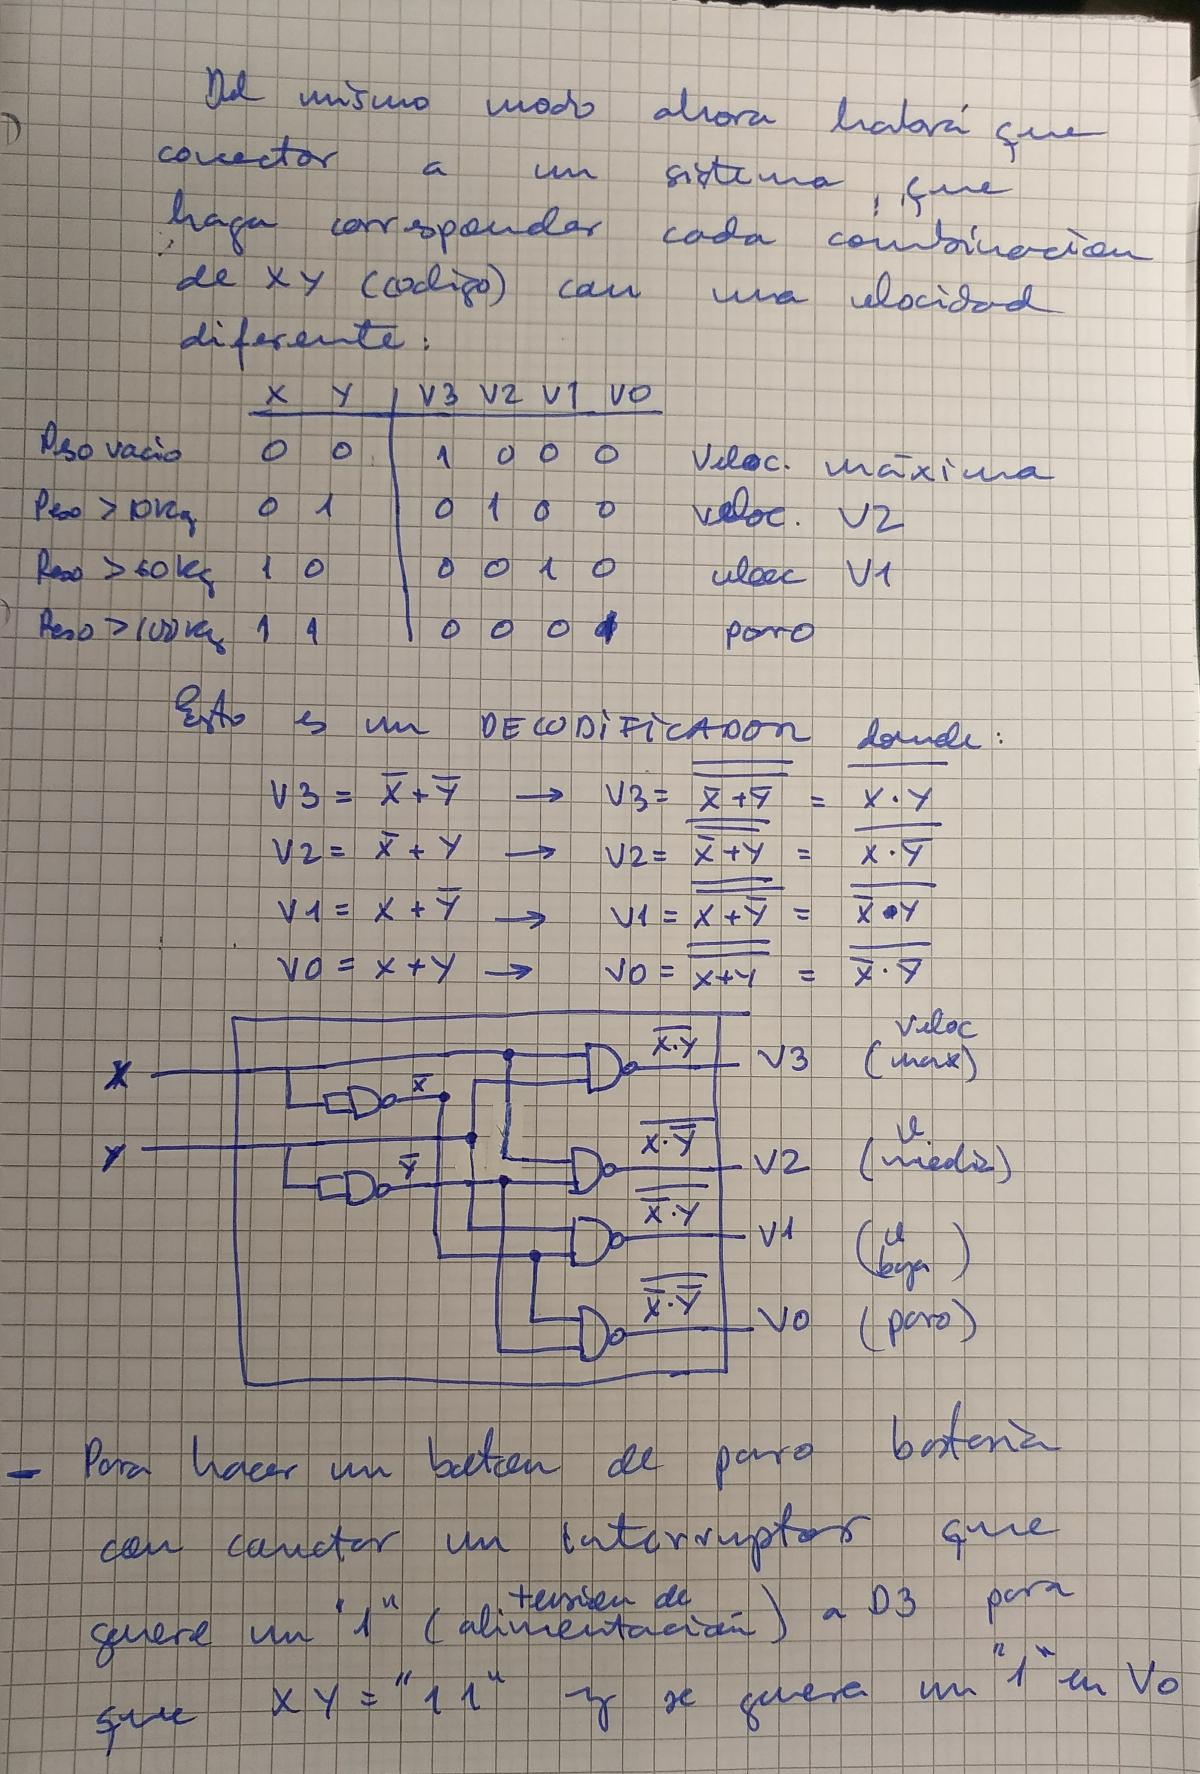 Del mismo modo ahora habrá que
conectar a un sistema, que
haga corresponder cada combinación
de X Y (código) con una velocidad
diferente:
X Y V3 V2 V1 V0
Peso vacio 0 0 1 0 0 0 Veloc. máxima
Peso >10Kg 0 1 0 1 0 0 veloc. V2
Peso >60Kg 1 0 0 0 1 0 veloc V1
Peso >100Kg 1 1 0 0 0 1 paro
Esto es un DECODIFICADOR donde:
V3 = X̅ + Y̅ → V3 = X̅ + Y̅ = X · Y
V2 = X̅ + Y → V2 = X̅ + Y = X · Y̅
V1 = X + Y̅ → V1 = X + Y̅ = X̅ · Y
V0 = X + Y → V0 = X + Y = X̅ · Y̅
X X̅ X·Y V3 veloc (max)
Y Y̅ X·Y̅ V2 v (media)
X̅·Y V1 (v baja)
X̅·Y̅ V0 (paro)
- Para hacer un boton de paro bastaria
con conectar un interruptor que
genere un "1" (tension de alimentación) a D3 para
que X Y = "1 1" y se genera un "1" en V0